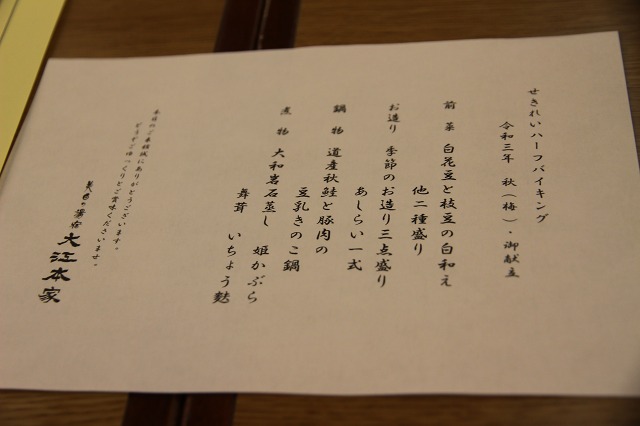 せきれいハーフバイキング
令和三年 秋(梅)・御献立
前菜 白花豆と枝豆の白和え
他二種盛り
お造り 季節のお造り三点盛り
あしらい一式
鍋物 道産秋鮭と豚肉の
豆乳きのこ鍋
煮物 大和岩石蒸し 姫かぶら
舞茸 いちょう麩
本日のご来館誠にありがとうございます。
どうぞごゆっくりとご賞味くださいませ。
美白の湯宿 大江本家